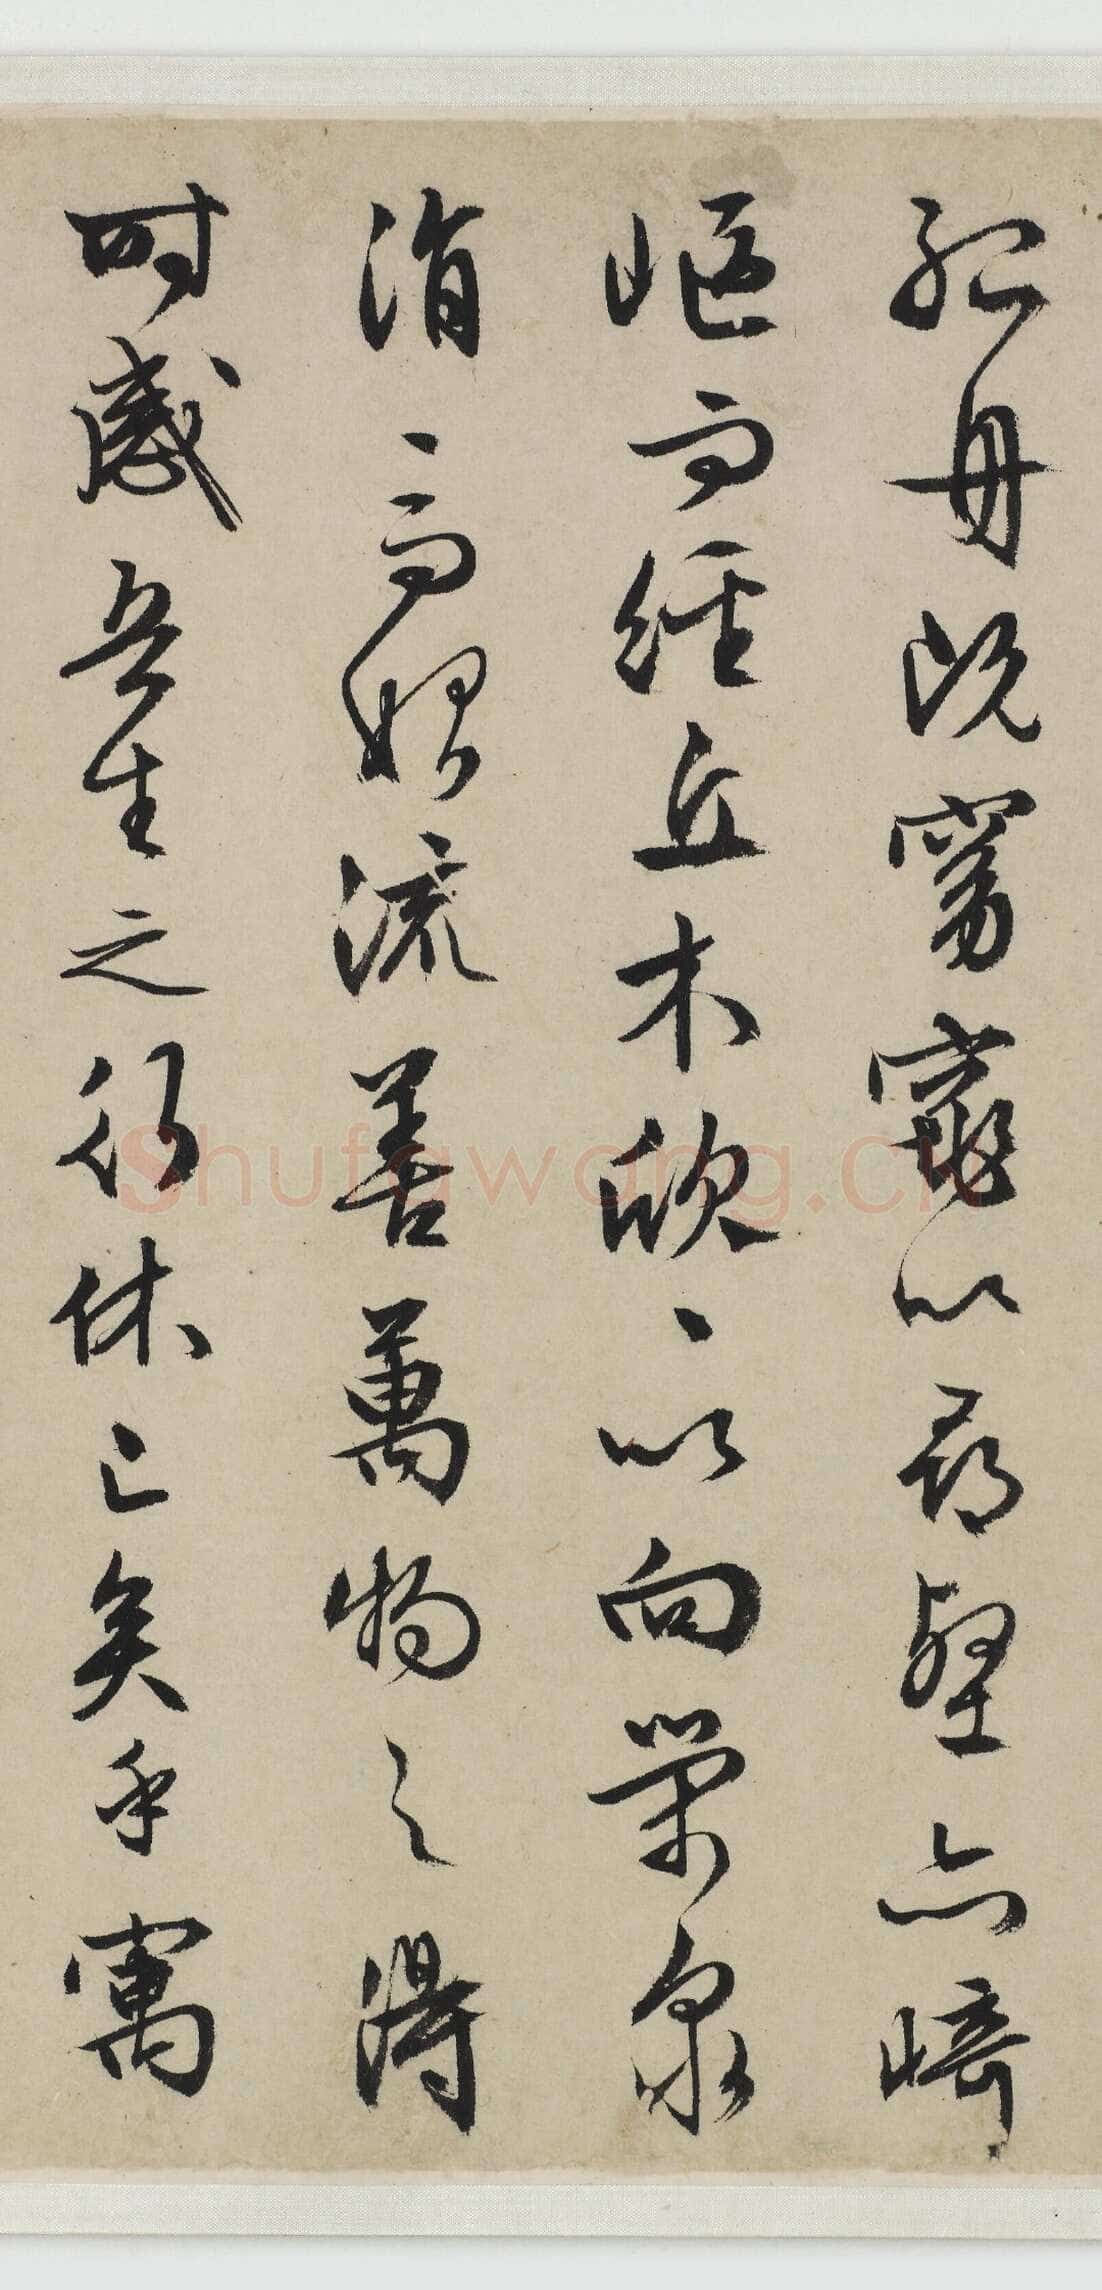 孤舟既窈窕以尋壑亦崎
嶇而經丘木欣〻以向榮泉
涓〻而始流善萬物之得
時感吾生之行休已矣乎寓
Shufawang.cn